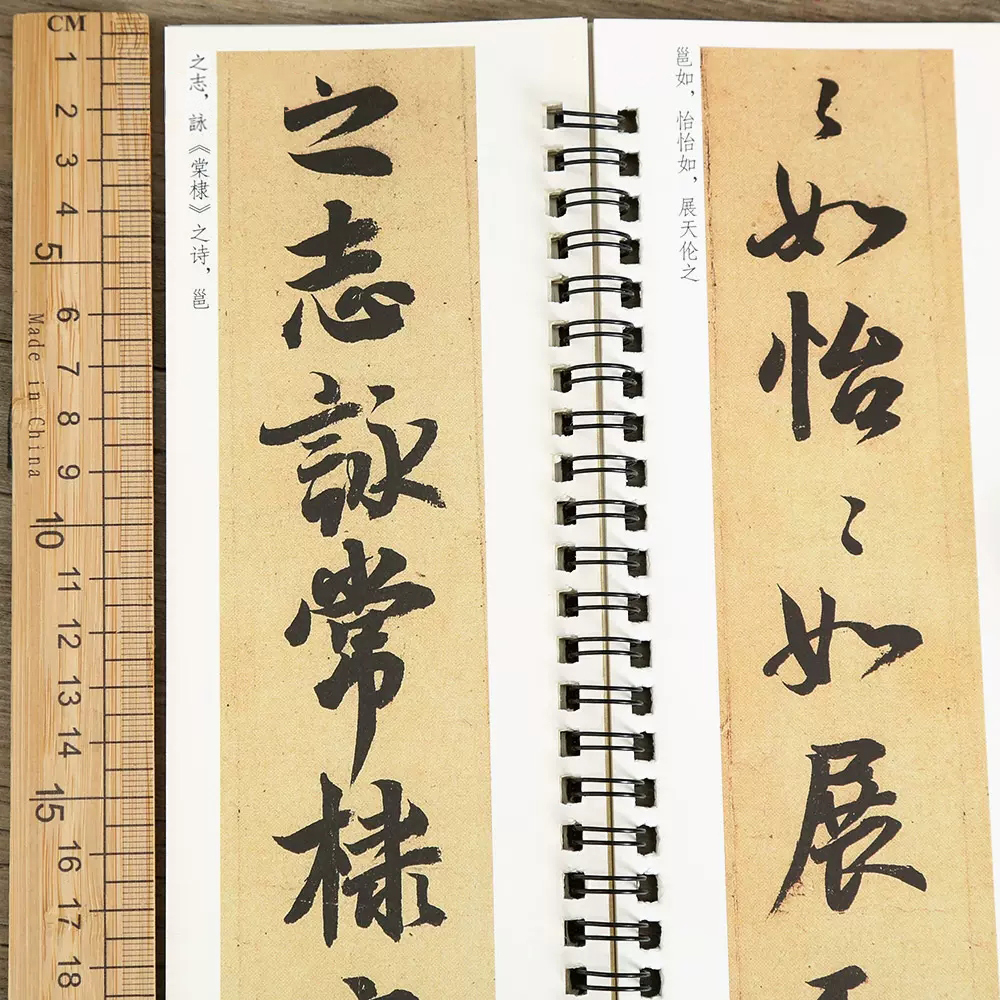 CM
1
2
3
4
5
6
7
8
9
10
11
12
13
14
15
16
17
18
Made in China
之志，詠《棠棣》之诗，邕
之志詠常棣
邕如，怡怡如，展天伦之
〻如怡〻如展